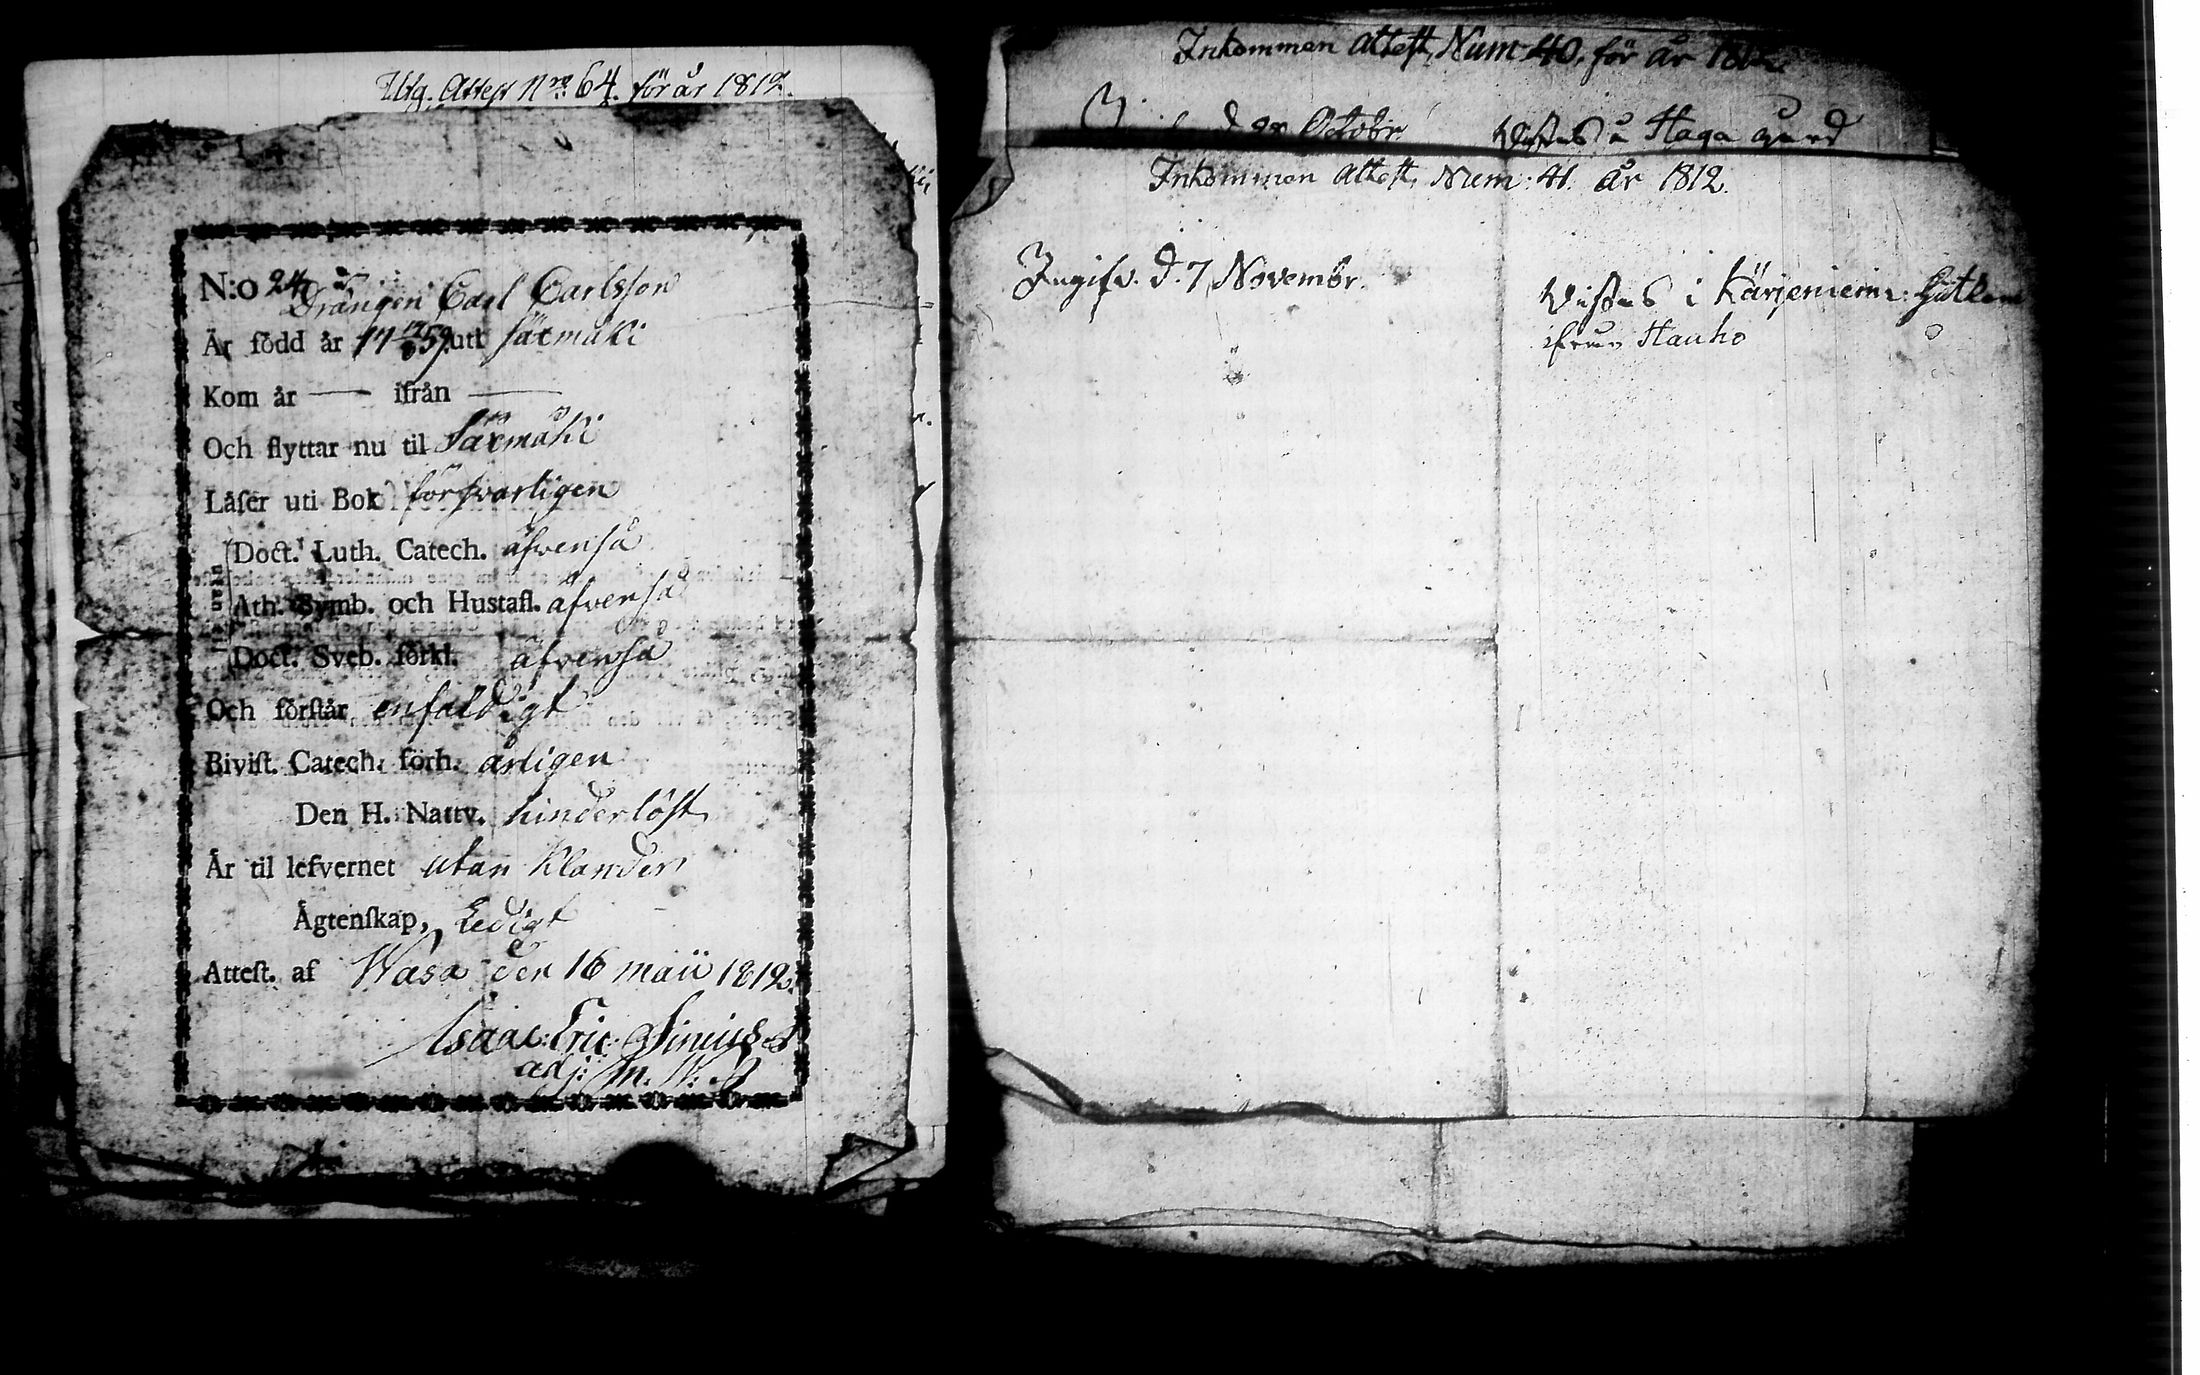 Utg. Attest N:ro 64. för år 1812.
N:o 24
Drängen Carl Carlsson
Är född år 17 59 uti Säxmäki
Kom år — ifrån —
Och flyttar nu til Säxmäki
Läſer uti Bok förſvarligen
utan til
Doct. Luth. Catech. äfvenſå
Ath. Symb. och Huſtafl. äfvenſå
Doct. Sveb. förkl. äfvenſå
Och förſtår enfaldigt
Biviſt. Catech. förh. årligen
Den H. Nattv. hinderlöſt
Är til lefvernet utan klander
Ägtenſkap, Ledigt
Atteſt. af Wasa den 16 maii 1812.
Isaac: Eric
adj:
Inkommen attest, Num 40. för år
Octobr. Vistas å Haga gård
Inkommen attest, Num: 41. år 1812.
Ingifv. d. 7 Novembr.
Vistas i Kärjeniemi
ifrån Hauho